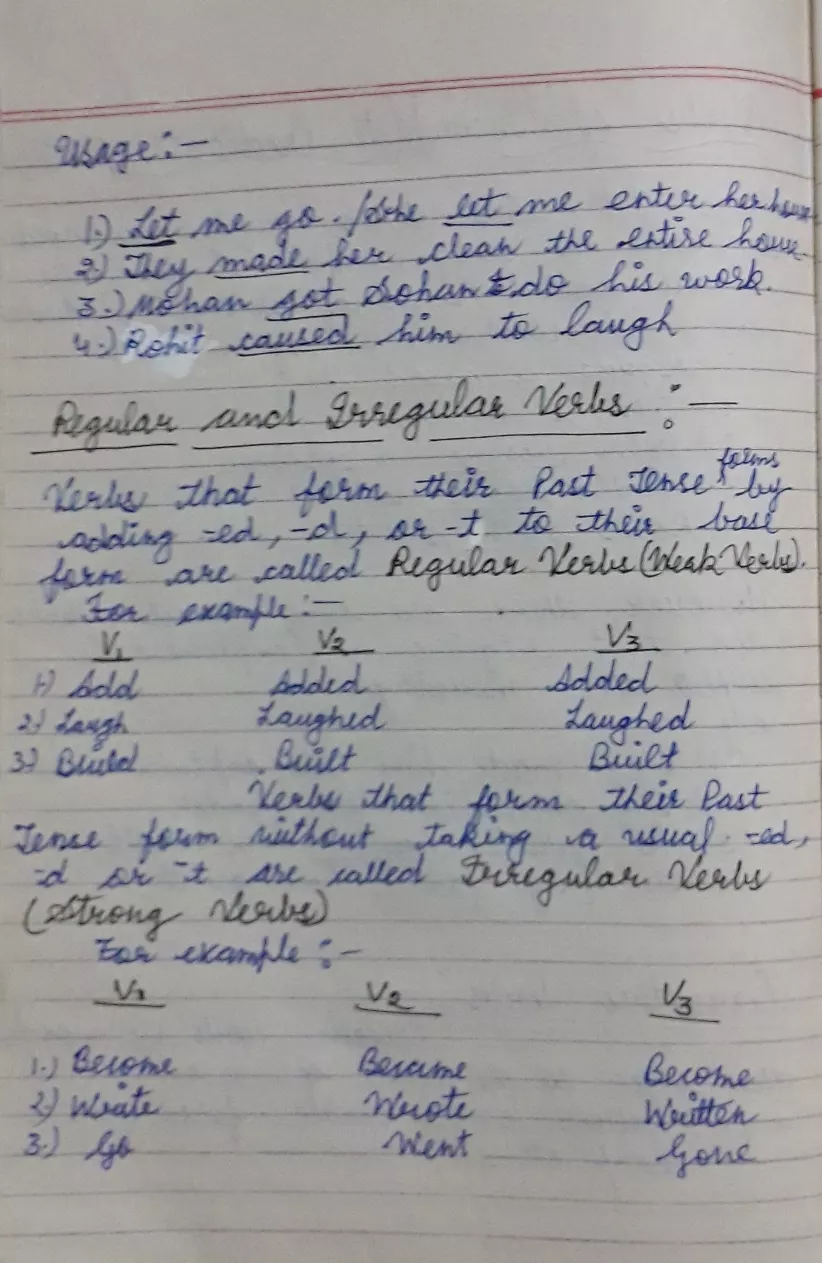 Usage:-
1.) Let me go. /She let me enter her house
2) They made her clean the entire house.
3.) Mohan got Sohan to do his work.
4.) Rohit caused him to laugh
Regular and Irregular Verbs :-
Verbs that form their Past Tense forms by
adding -ed, -d, or -t to their base
form are called Regular Verbs (Weak Verbs).
For example :-
V1 V2 V3
1) Add Added Added
2) Laugh Laughed Laughed
3) Build Built Built
Verbs that form their Past
Tense form without taking a usual -ed,
-d or -t are called Irregular Verbs
(Strong Verbs)
For example :-
V1 V2 V3
1.) Become Became Become
2) Write Wrote Written
3.) Go Went Gone